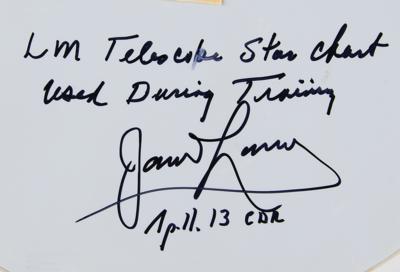 LM Telescope Star Chart
Used During Training
James Lovell
Apollo 13 CDR